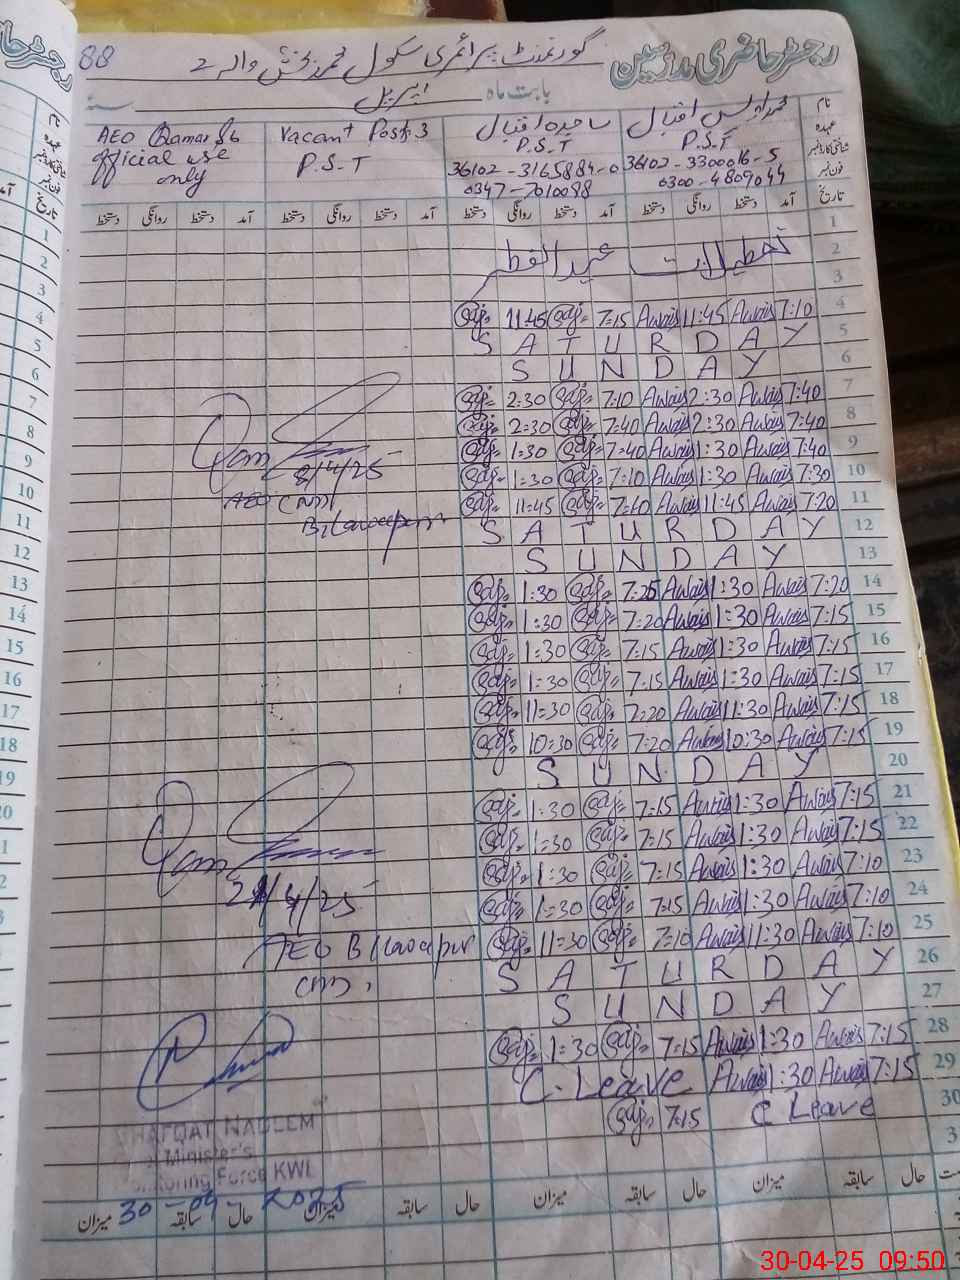 88
گورنمنٹ پرائمری سکول محمد بخش والہ 2
رجسٹر حاضری مدرسین
بابت ماہ اپریل سنہ
نام
عہدہ
شناختی کارڈ نمبر
فون نمبر
محمد اویس اقبال
P.S.T
36102-3300016-5
0300-4809044
ساجدہ اقبال
P.S.T
36102-3165884-0
0347-7010098
Vacant Post:3
P.S.T
AEO Qamar Sb
official use
only
تاریخ آمد دستخط روانگی دستخط آمد دستخط روانگی دستخط آمد دستخط روانگی دستخط آمد دستخط روانگی دستخط
1
2 تعطیلات عید الفطر
3
4 7:10 Awais 11:45 Awais 7:15 Saj 11:45 Saj
5 SATURDAY
6 SUNDAY
7 7:40 Awais 2:30 Awais 7:10 Saj 2:30 Saj
8 7:40 Awais 2:30 Awais 7:40 Saj 2:30 Saj
9 7:40 Awais 1:30 Awais 7:40 Saj 1:30 Saj
10 7:30 Awais 1:30 Awais 7:10 Saj 1:30 Saj
11 7:20 Awais 11:45 Awais 7:40 Saj 11:45 Saj
12 SATURDAY
13 SUNDAY
14 7:20 Awais 1:30 Awais 7:25 Saj 1:30 Saj
15 7:15 Awais 1:30 Awais 7:20 Saj 1:30 Saj
16 7:15 Awais 1:30 Awais 7:15 Saj 1:30 Saj
17 7:15 Awais 1:30 Awais 7:15 Saj 1:30 Saj
18 7:15 Awais 11:30 Awais 7:20 Saj 11:30 Saj
19 7:15 Awais 10:30 Awais 7:20 Saj 10:30 Saj
20 SUNDAY
21 7:15 Awais 1:30 Awais 7:15 Saj 1:30 Saj
22 7:15 Awais 1:30 Awais 7:15 Saj 1:30 Saj
23 7:10 Awais 1:30 Awais 7:15 Saj 1:30 Saj
24 7:10 Awais 1:30 Awais 7:15 Saj 1:30 Saj
25 7:10 Awais 11:30 Awais 7:10 Saj 11:30 Saj
26 SATURDAY
27 SUNDAY
28 7:15 Awais 1:30 Awais 7:15 Saj 1:30 Saj
29 7:15 Awais 1:30 Awais C-Leave
30 C Leave 7:15 Saj
8/4/25
AEO
/4/25
AEO
SHAFQAT NADEEM
Minister's
Monitoring Force KWL
30-04-2025
حال سابقہ میزان حال سابقہ میزان حال سابقہ میزان حال سابقہ میزان
30-04-25 09:50